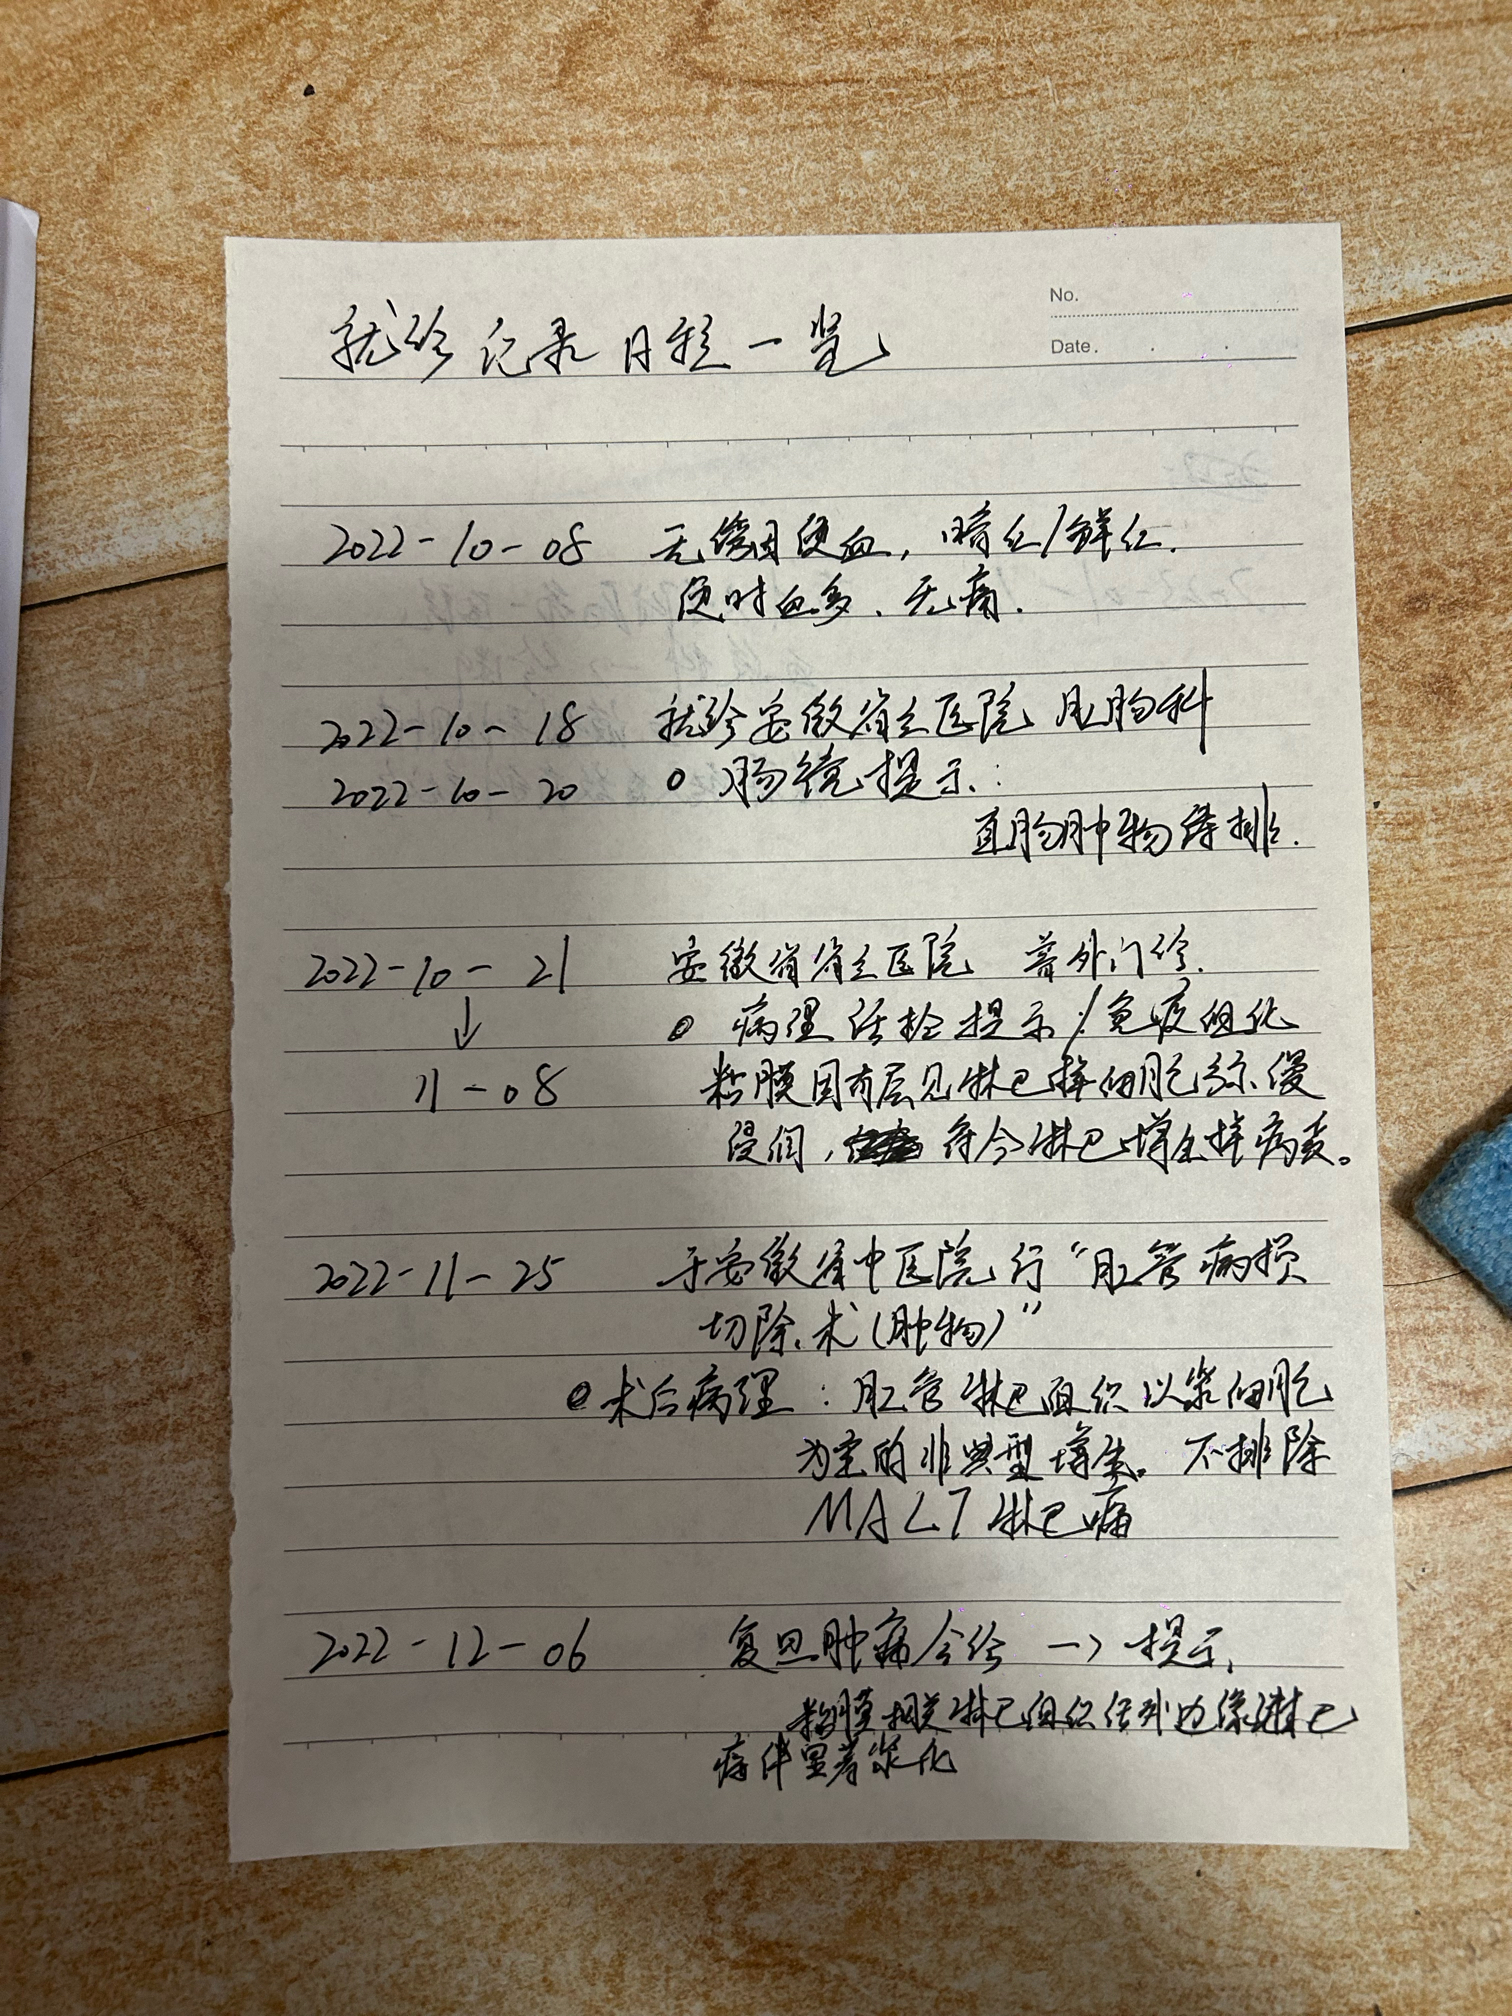 No.
Date.
就诊记录日程一览
2022-10-08 无诱因便血，暗红/鲜红.
便时血多、无痛.
2022-10-18 就诊安徽省立医院 肛肠科
2022-10-20 肠镜提示:
直肠肿物待排.
2022-10-21 安徽省省立医院 普外门诊.
↓ 病理活检提示/免疫组化
11-08 粘膜固有层见淋巴样细胞弥漫
浸润, 符合淋巴增生样病变。
2022-11-25 于安徽省中医院行“肛管病损
切除术(肿物)”
术后病理:肛管淋巴组织以浆细胞
为主的非典型增生。不排除
MALT淋巴瘤
2022-12-06 复旦肿瘤会诊 → 提示,
粘膜相关淋巴组织结外边缘淋巴
瘤伴显著浆化